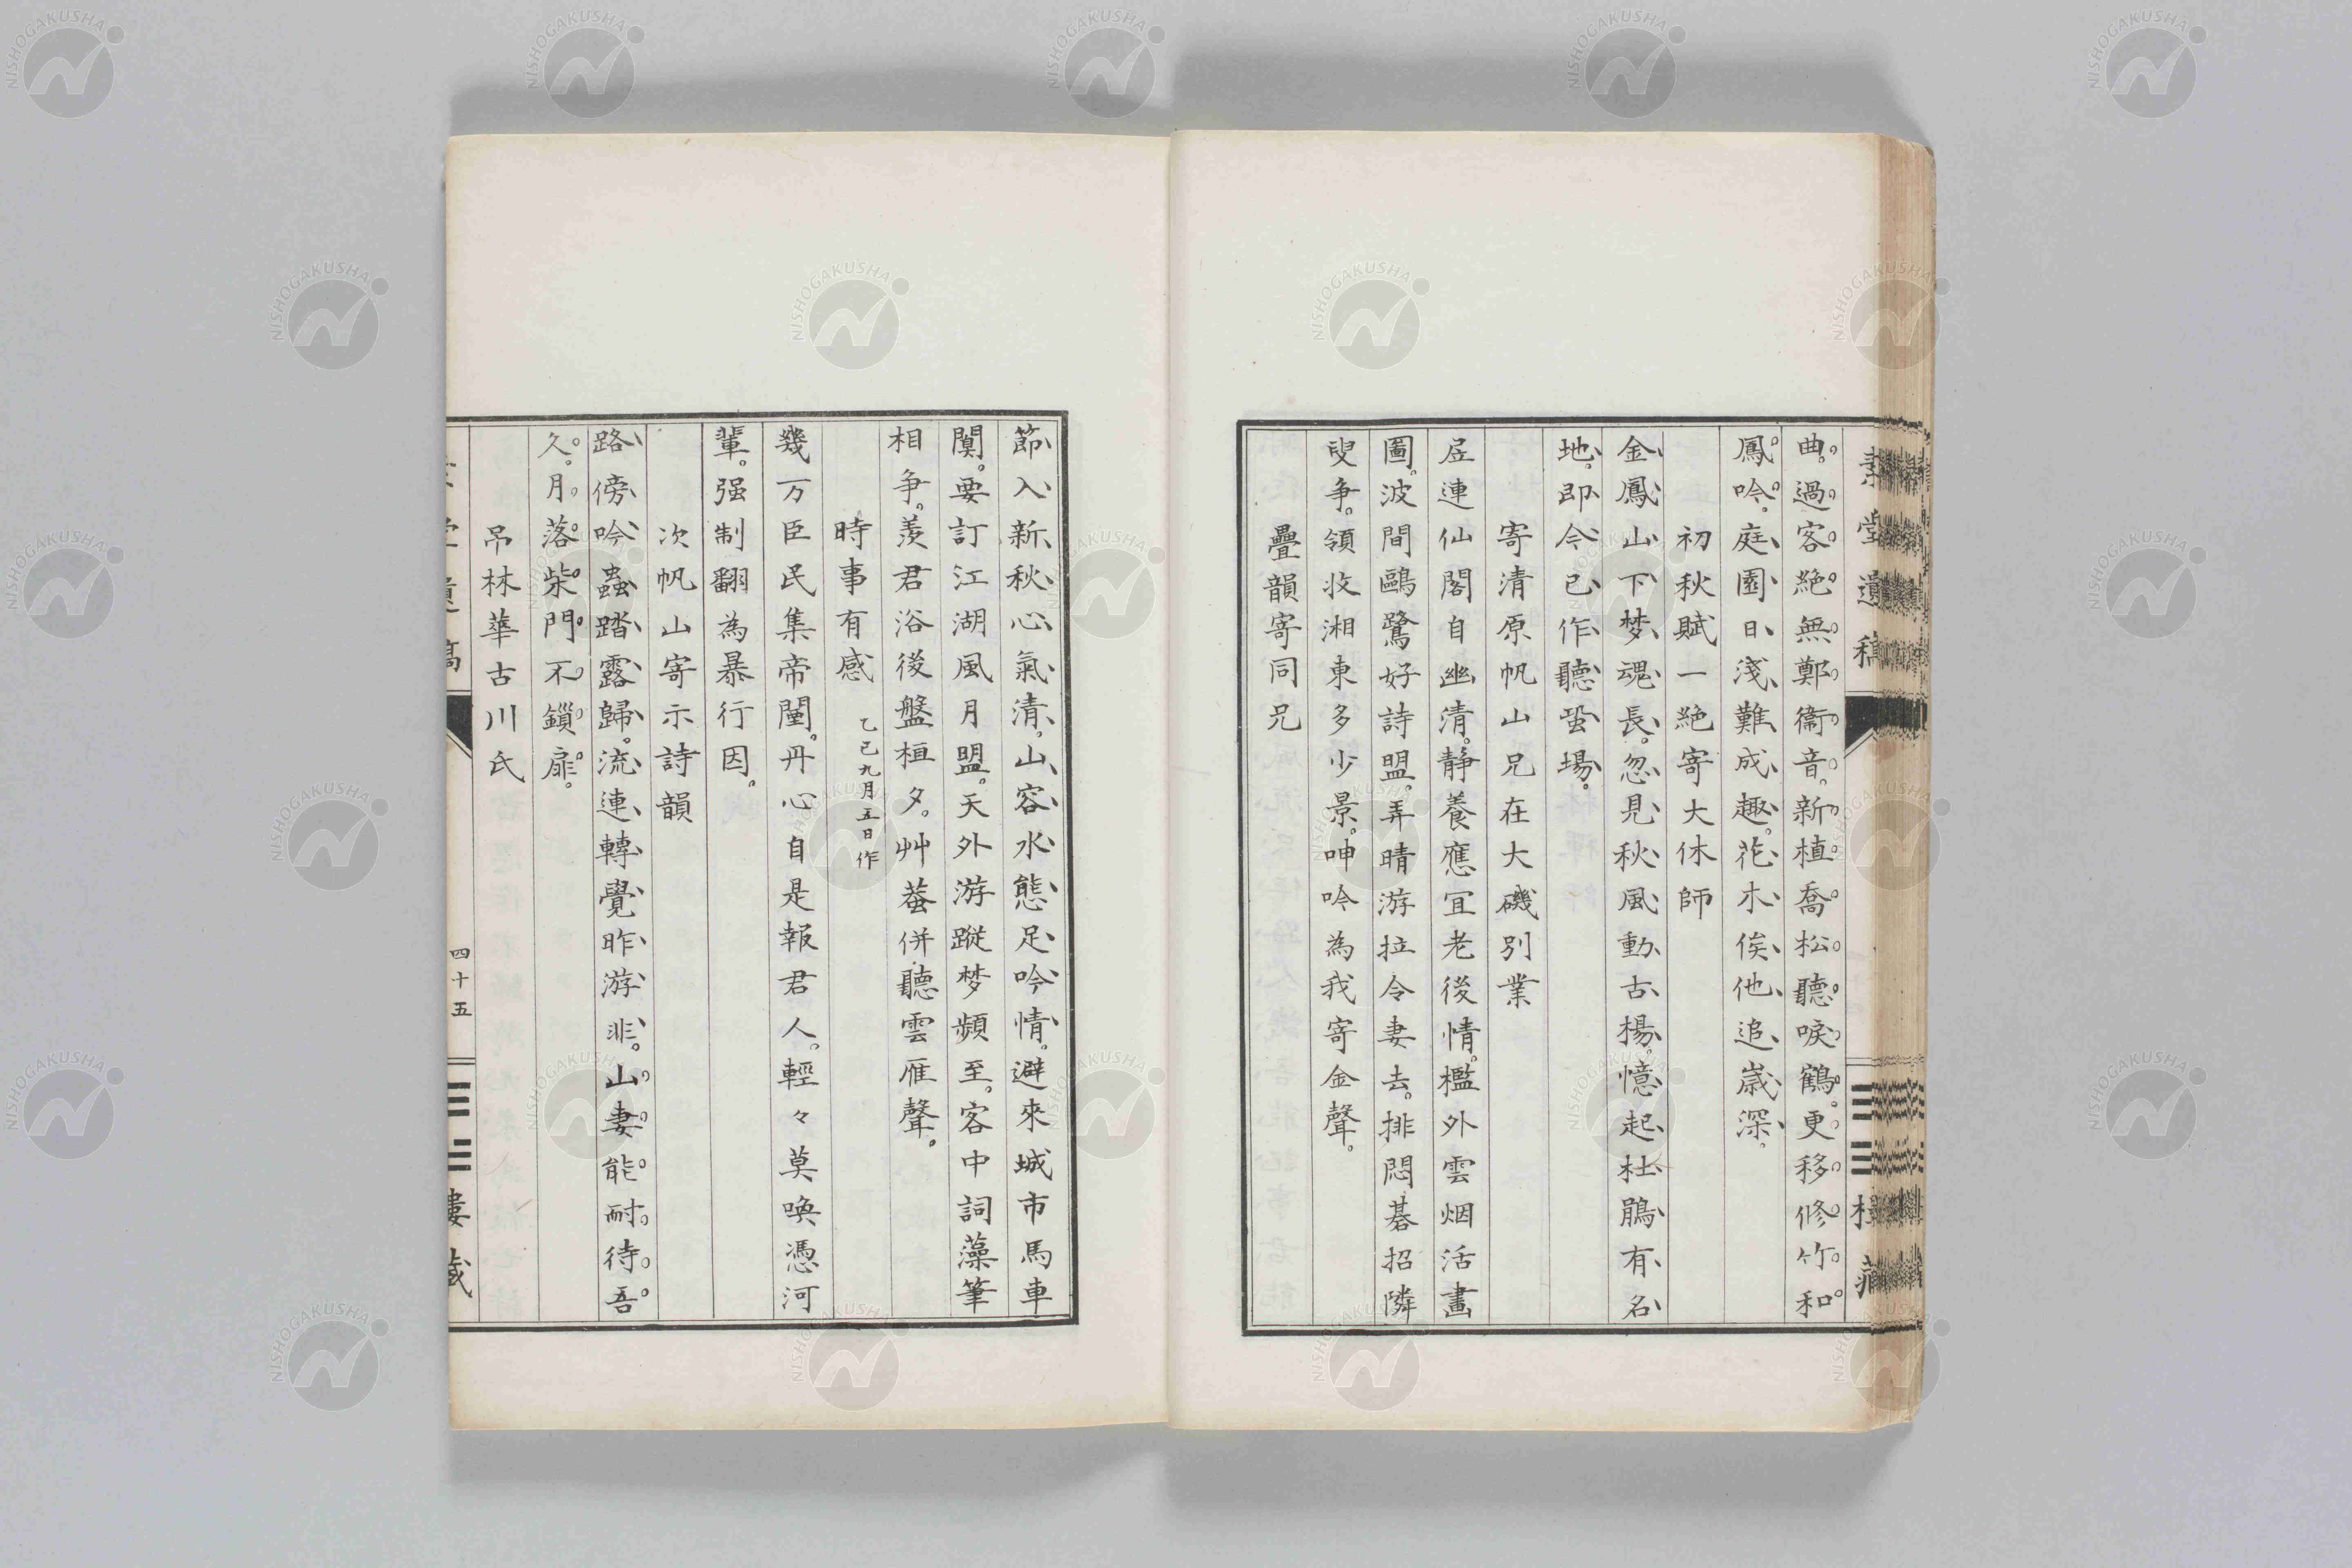 曲。過客絶無鄭衞音。新植喬松聽唳鶴。更移修竹和
鳳吟。庭園日淺難成趣。花木俟他追歲深。
初秋賦一絶寄大休師
金鳳山下梦魂長。忽見秋風動古楊。憶起杜鵑有名
地。即今已作聽蛩場。
寄清原帆山兄在大磯別業
居連仙閣自幽清。静養應宜老後情。檻外雲烟活畫
圖。波間鷗鷺好詩盟。弄晴游拉令妻去。排悶碁招隣
叟争。領收湘東多少景。呻吟為我寄金聲。
疊韻寄同兄
節入新秋心氣清。山容水態足吟情。避來城市馬車
闃。要訂江湖風月盟。天外游蹤梦頻至。客中詞藻筆
相争。羨君浴後盤桓夕。艸菴併聽雲雁聲。
時事有感 乙巳九月五日作
幾万臣民集帝闉。丹心自是報君人。輕々莫喚憑河
輩。强制翻為暴行因。
次帆山寄示詩韻
路傍吟蟲踏露歸。流連轉覺昨游非。山妻能耐待吾
久。月落柴門不鎖扉。
吊林華古川氏
四十五
NISHOGAKUSHA